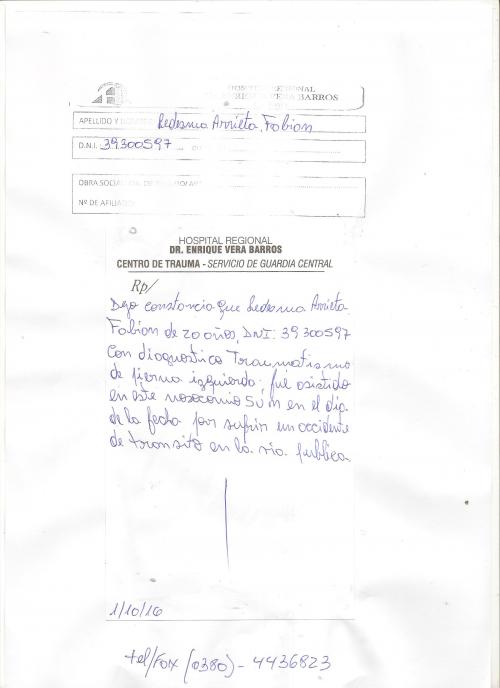 HOSPITAL REGIONAL
ENRIQUE VERA BARROS
APELLIDO Y NOMBRE Ledesma Arrieta, Fabian
D.N.I. 39.300597
OBRA SOCIAL
Nº DE AFILIADO
HOSPITAL REGIONAL
DR. ENRIQUE VERA BARROS
CENTRO DE TRAUMA - SERVICIO DE GUARDIA CENTRAL
Rp/
Dejo constancia que Ledesma Arrieta
Fabian de 20 años, DNI: 39300597
Con diagnostico Traumatismo
de pierna izquierda; fue asistido
en este nosocomio en el dia
de la fecha por sufrir un accidente
de transito en la via publica
1/10/16
tel/Fax (0380) - 4436823